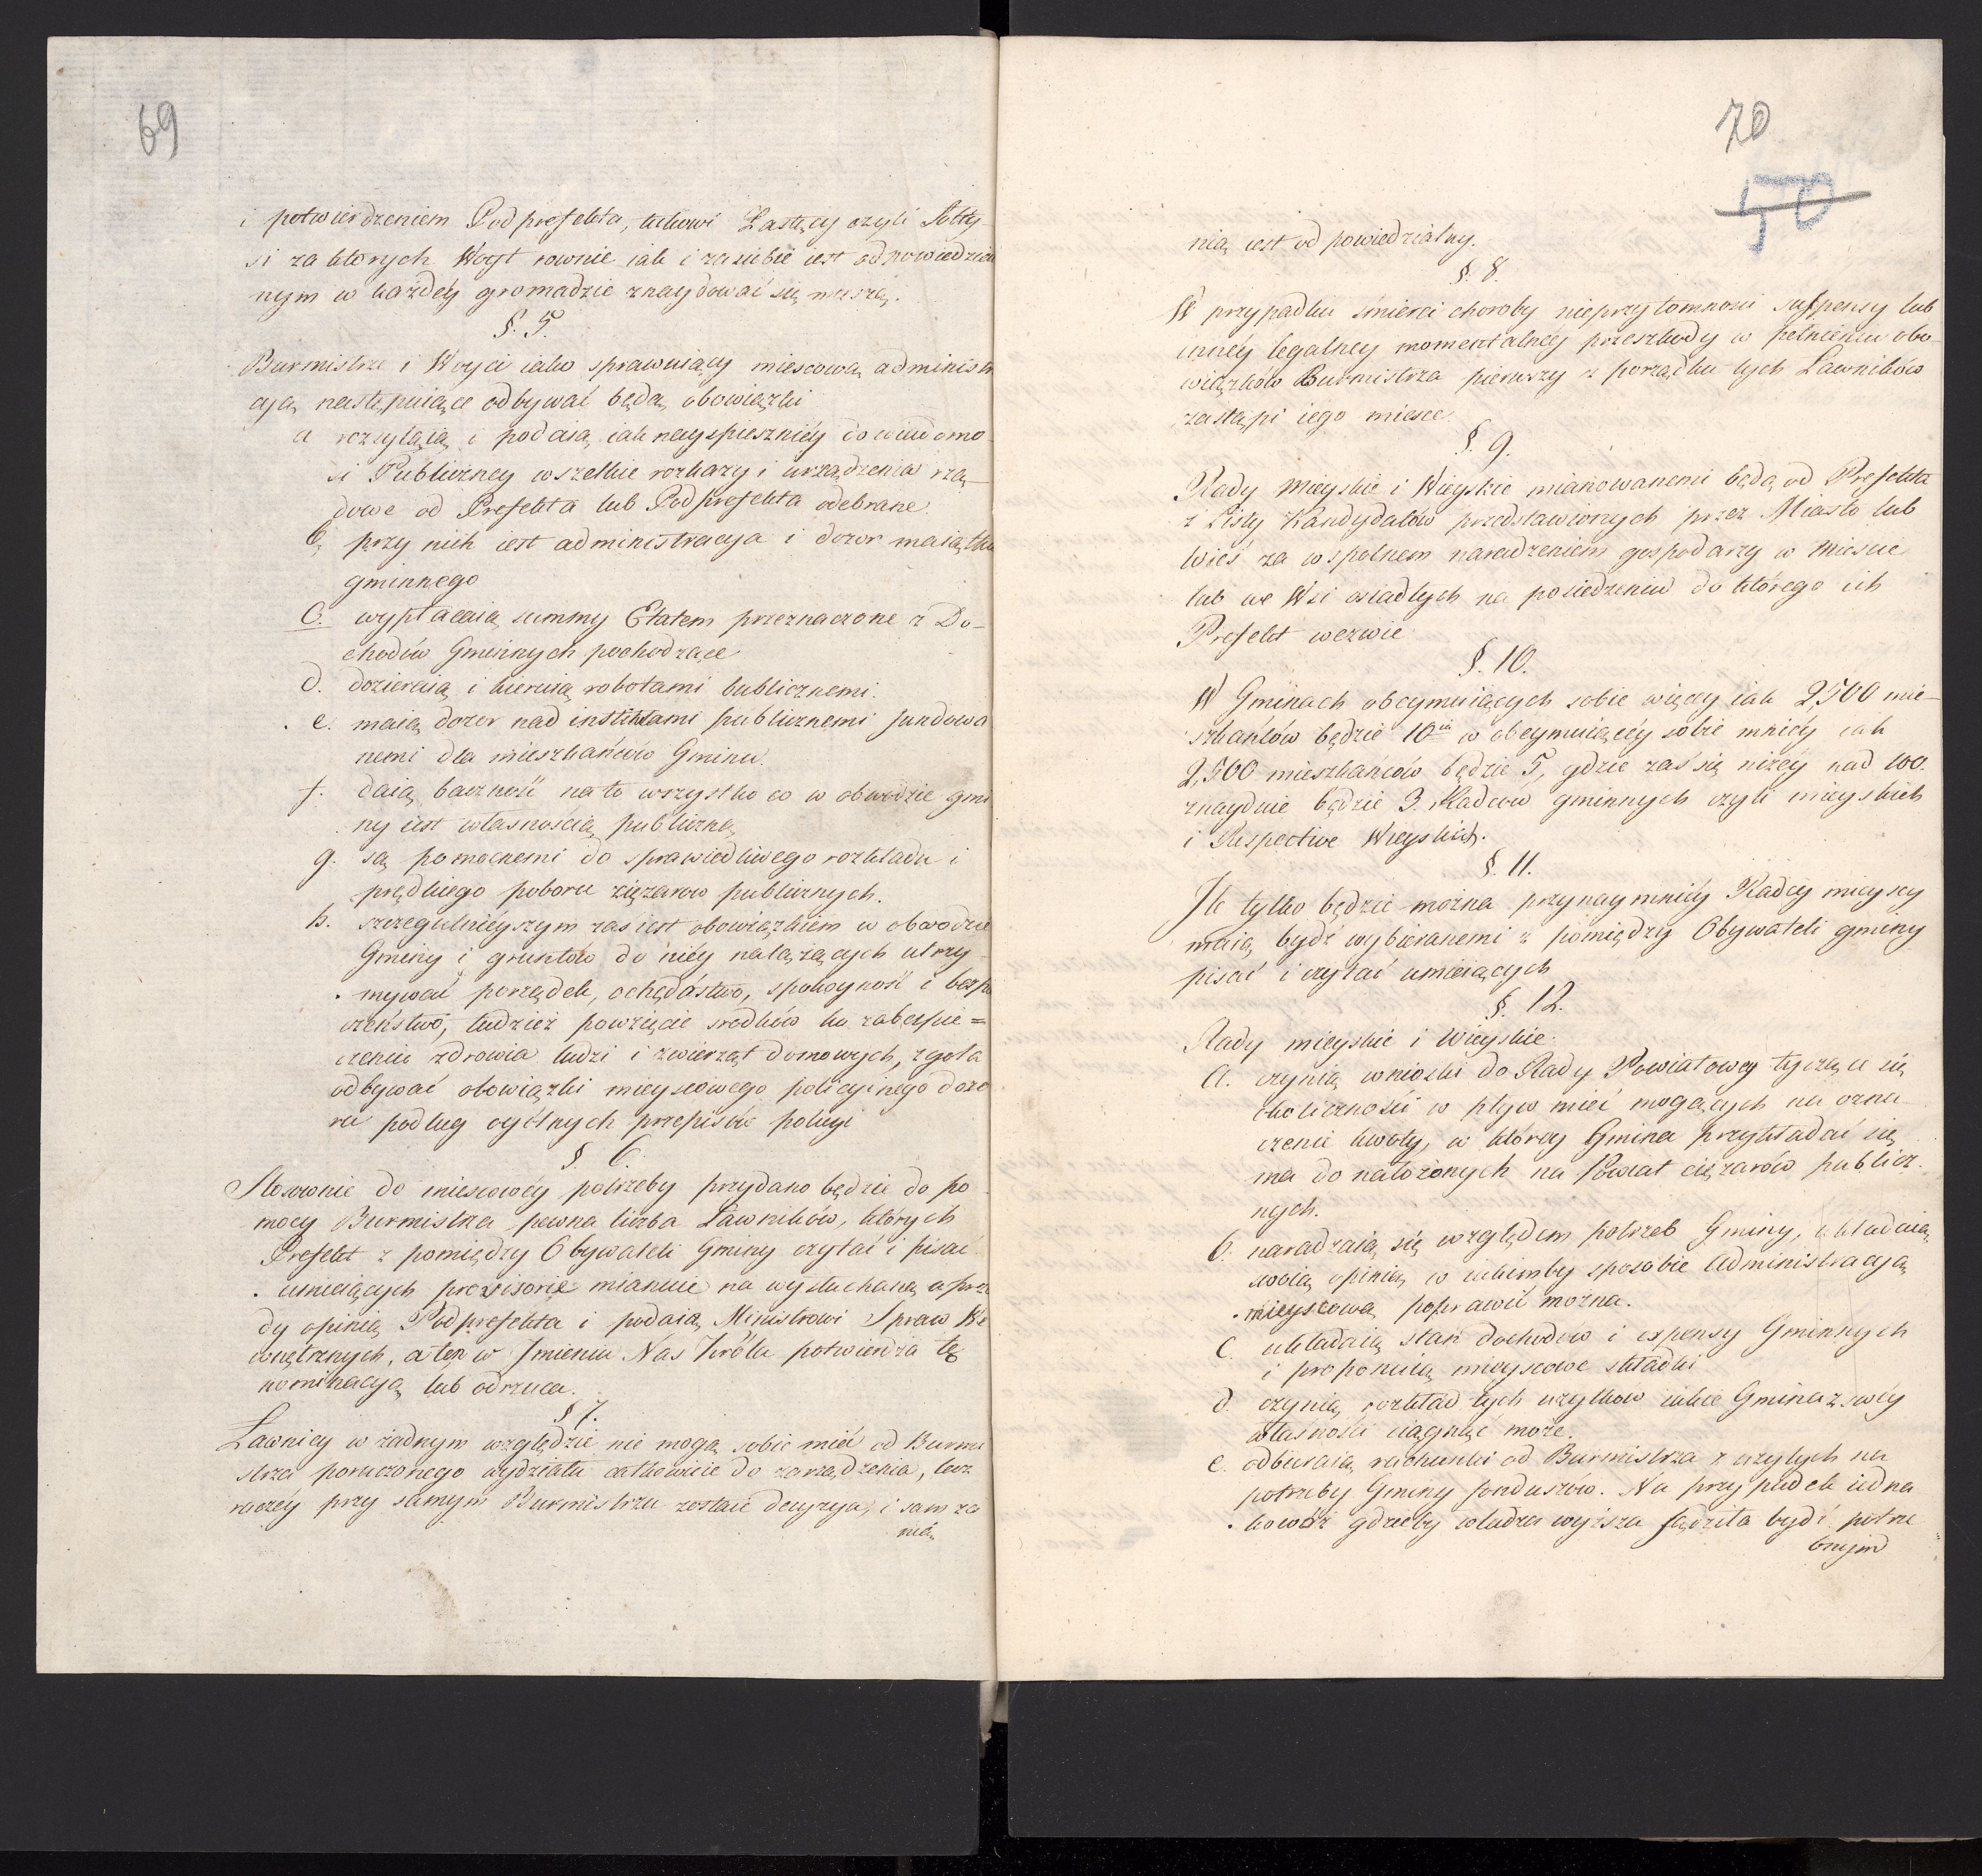 69
i potwierdzeniem Podprefekta, takowi Zastęcy czyli Sołty-
si za których Woyt rownie iak i za siebie iest odpowiedzial
nym w każdéy gromadzie znaydować się muszą.
§. 5.
Burmistrze i Woyci iako sprawuiący miescową administr
acyą następuiące odbywać będą obowiązki
a rozsyłaią i podaią iak nayspieszniéy do wiadomo
si Publiczney wszelkie rozkazy i urządzenia rzą-
dowe od Prefekta lub Podprefekta odebrane.
b, przy nich iest administracya i dozor maiątku
gminnego
C. wypłacaią summy Etatem przeznaczone z Do-
chodów Gminnych pochodzące
d. dozieraią i kieruią robotami publicznemi.
e. maią dozor nad institutami publicznemi fundowa
nemi dla mieszkańców Gminu.
f. daią baczność na to wszystko co w obwodzie gmi
ny iest własnością publiczną
g. są pomocnemi do sprawiedliwego rozkładu i
prędkiego poboru ciężarow publicznych.
h. szczegulnieyszym zaś iest obowiązkiem w obwodzie
Gminy i gruntów do niéy należących utrzy-
mywać porządek, ochędóstwo, spokoyność i bespie
czeństwo, tudzież powzięcie srodków ku zabespie=
czeniu zdrowia ludzi i zwierząt domowych, zgoła
odbywać obowiązki mieyscowego policyinego dozo
ru podług ogólnych przepisów policyi
§ 6.
Stosownie do miescowéy potrzeby przydano będzie do po
mocy Burmistrza pewna liczba Ławników, których
Prefekt z pomiędzy Obywateli Gminy czytać i pisać
umieiących prowisorie mianuie na wysłuchaną uprze
dy opinią Podprefekta i podaią Ministrowi Spraw We
wnętrznych, a ten w Imieniu Nas Króla potwierdza tę
nominacyą lub odrzuca.
§ 7.
Ławnicy w żadnym względzie nie mogą sobie mieć od Burmi
strza poruczonego wydziału całkowicie do zarządzenia, lecz
raczéy przy samym Burmistrzu zostaie decyzya, i sam za
nią
70
50
nią iest odpowiedzialny.
§. 8.
W przypadku śmierci choroby nieprzytomnosci suspensy lub
innéy legalney momentalnéy przeszkody w pełnieniu obo-
wiązków Burmistrza pierwszy z porządku tych Ławników
zastąpi iego miesce.
§. 9.
Rady Mieyskie i Wieyskie mianowanemi będą od Prefekta
z Listy Kandydatów przedstawionych przez Miasto lub
Wieś za wspolnem naradzeniem gospodarzy w Mieście
lub we Wsi osiadłych na posiedzeniu do którego ich
Prefekt wezwie
§. 10.
W Gminach obeymuiących sobie więcey iak 2500 mie-
szkańców będzie 10iu w obeymuiącéy sobie mniéy iak
2,500 mieszkańców będzie 5, gdzie zaś się niżéy nad 100.
znayduie będzie 3. Radców gminnych czyli mieyskich
i Respective Wieyskich.
§. 11.
Ile tylko będzie można przynaymniéy Radcy mieyscy
maią bydź wybieranemi z pomiędzy Obywateli gminy
pisać i czytać umieiących
§. 12.
Rady mieyskie i Wieyskie.
a. czynią wnioski do Rady Powiatowey tyczące się
okoliczności w pływ mieć mogących na ozna-
czenie kwoty, w któréy Gmina przykładać się
ma do nałożonych na Powiat ciężarów publicz-
nych.
b. naradzaią się względem potrzeb Gminy, układaią
swoią opinią w iakimby sposobie Administracyą
mieyscową poprawić można.
c. układaią stan dochodów i expensy Gminnych
i proponuią mieyscowe składki
d. czynią rozkład tych użytkow iakie Gmina z swéy
własności ciągnąć może.
e. odbieraią rachunki od Burmistrza z użytych na
potrzeby Gminy funduszów. Na przypadek iedna
kowóż gdzieby władza wyższa sądziła bydź potrze
bnym